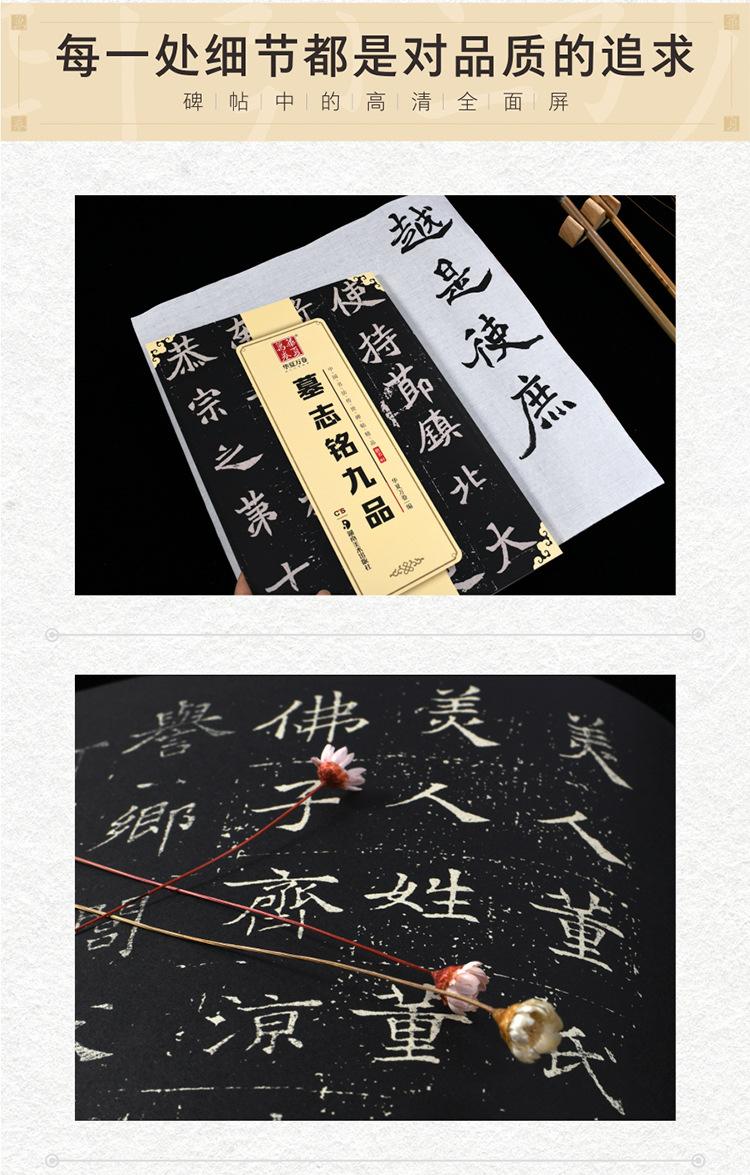 每一处细节都是对品质的追求
碑帖中的高清全面屏
越是使庶
使持节镇北大
恭宗之第十
华夏万卷
华夏万卷
墓志铭九品
中国书法传世碑帖精品
华夏万卷 编
湖南美术出版社
美人董氏
美人姓董
佛子齊涼
譽鄉閭